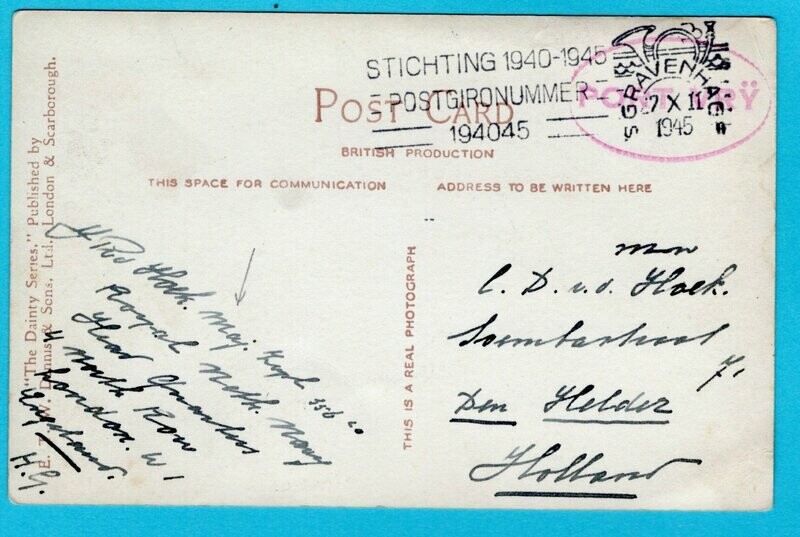 STICHTING 1940-1945
POSTGIRONUMMER
194045
SGRAVENHAGE
7 XII
1945
POST CARD
BRITISH PRODUCTION
THIS SPACE FOR COMMUNICATION
ADDRESS TO BE WRITTEN HERE
"The Dainty Series," Published by
E. T. W. Dennis & Sons, Ltd., London & Scarborough.
Hoek. Maj.
Royal Neth. Navy
Head Quarters
4 North Row
London. W1
England.
THIS IS A REAL PHOTOGRAPH
C. D. v. d. Hoek.
71
Den Helder
Holland